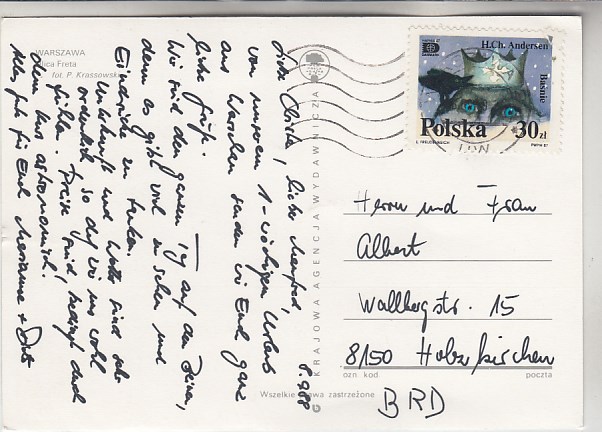 WARSZAWA
Ulica Freta
fot. P. Krassowski
8.9.88
Liebe Christa, lieber Manfred,
von unserem 1-wöchigen Urlaub
aus Warschau senden wir Euch ganz
liebe Grüße.
Wir sind den ganzen Tag auf den Beinen,
denn es gibt viel zu sehen und
Eindrücke zu tanken.
Unterkunft und Wetter sind sehr
ordentlich so daß wir uns wohl
fühlen. Preise sind, bedingt durch
den Kurs astronomisch.
Alles Gute für Euch Marianne +
KRAJOWA AGENCJA WYDAWNICZA
Wszelkie prawa zastrzeżone
DANMARK
H.Ch. Andersen
Baśnie
Polska 30 zł
Herrn und Frau
Albert
Wallbergstr. 15
8150 Holzkirchen
ozn. kod. poczta
BRD